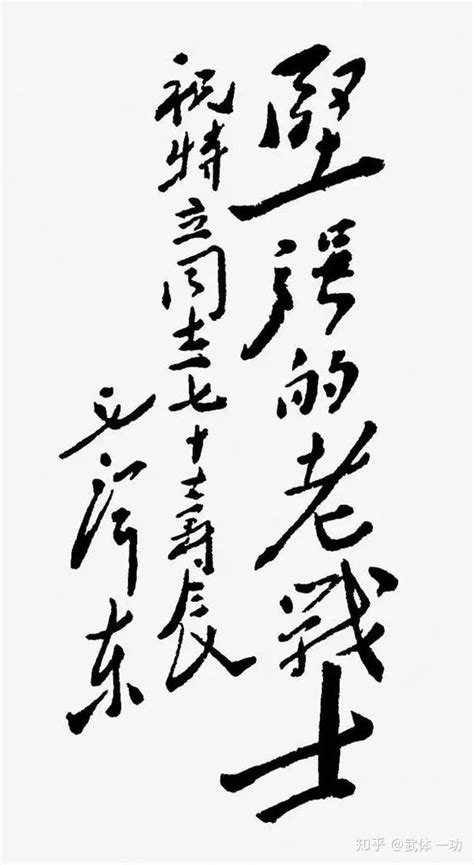 堅强的老戰士
祝特立同志七十大寿辰
毛泽东
知乎 @武体一功